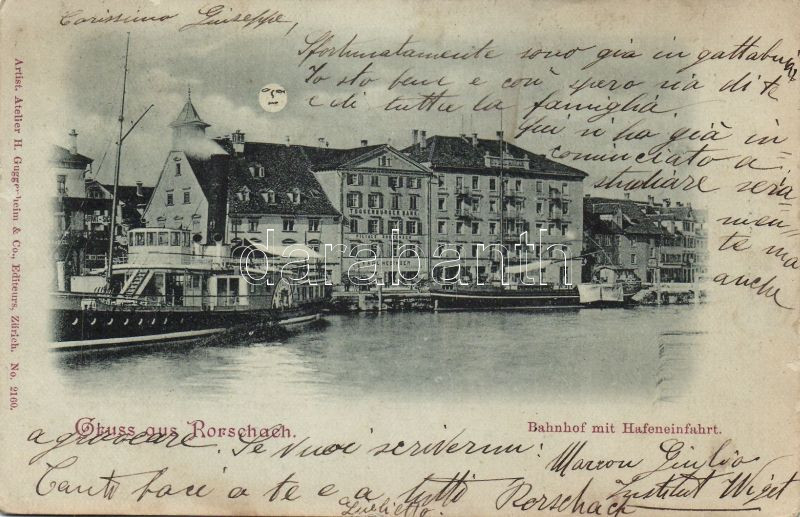 Carissimo Giuseppe,
Sfortunatamente sono già in gattabuia
Io sto bene e così spero sia di te
e di tutta la famiglia
Qui si ha già in
cominciato a
studiare seria
men
te ma
anche
a giuocare. Se vuoi scrivermi:
Marxon Giulio
Institut Wiget
Rorschach
Tanti baci a te e a tutti
Giulietto.
Gruss aus Rorschach.
Bahnhof mit Hafeneinfahrt.
Artist. Atelier H. Guggenheim & Co., Editeurs, Zürich. No. 2160.
TOGGENBURGER BANK
darabanth